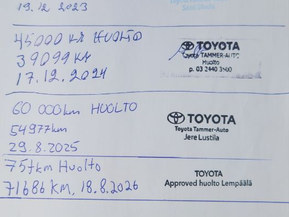 19.12.2023
45000 KM HUOLTO
39099 KM
17.12.2024
TOYOTA
TOYOTA TAMMER-AUTO
Huolto
p. 03 2440 3400
60 000km HUOLTO
54977km
29.8.2025
TOYOTA
Toyota Tammer-Auto
Jere Lustila
75tkm Huolto
71686 KM, 18.8.2026
TOYOTA
Approved huolto Lempäälä